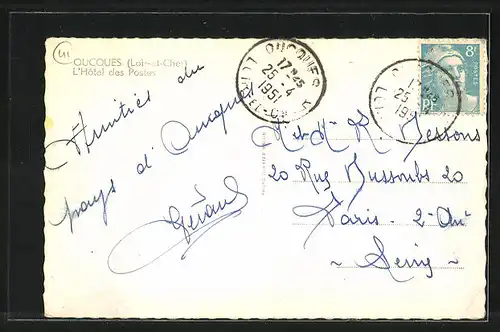 OUCQUES (Loir-et-Cher)
L'Hôtel des Postes
OUCQUES
17H45
25-4
1951
LOIR-ET-CHER
8F
Amitiés du
pays d'Oucques
Gérard
M. et Mme R. Messons
20 Rue Dussoubs 20
Paris - 2e Arr
~ Seine ~